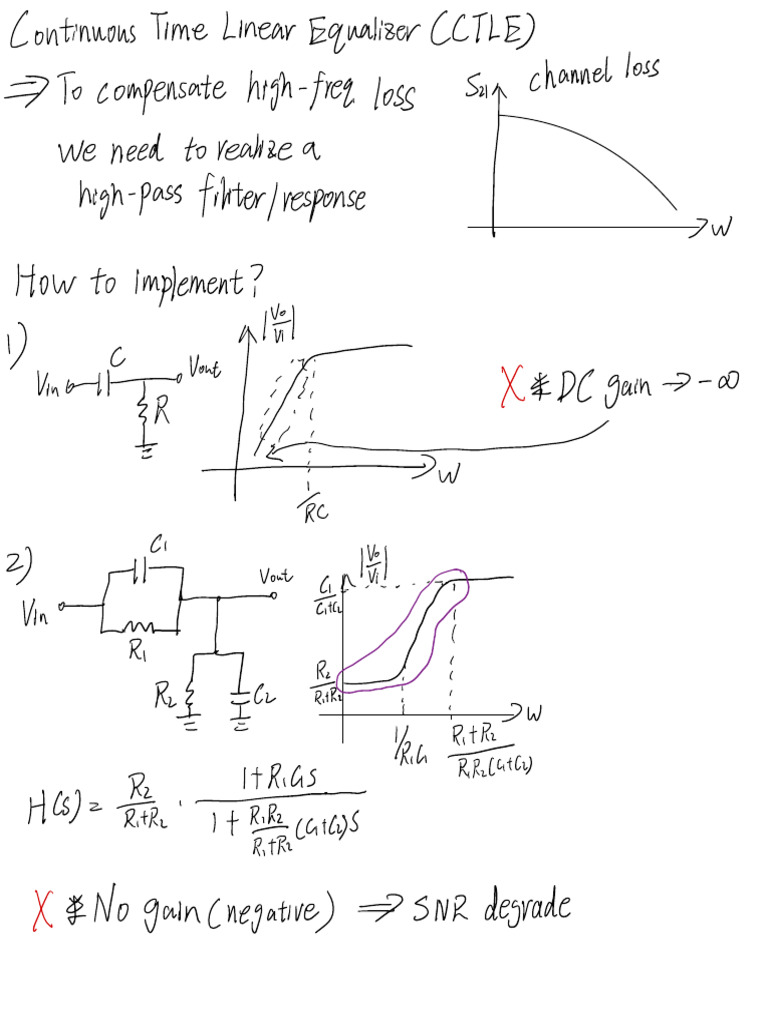 Continuous Time Linear Equalizer (CTLE)
⇒ To compensate high-freq loss
we need to realize a
high-pass filter/response
S21
channel loss
W
How to implement?
1)
Vin
C
Vout
R
|Vo/Vi|
1/RC
W
X * DC gain → -∞
2)
Vin
C1
R1
Vout
R2
C2
|Vo/Vi|
C1/(C1+C2)
R2/(R1+R2)
1/R1C1
R1+R2/R1R2(C1+C2)
W
H(s) = R2/(R1+R2) · (1+R1C1s)/(1+R1R2/(R1+R2)(C1+C2)s)
X * No gain (negative) ⇒ SNR degrade